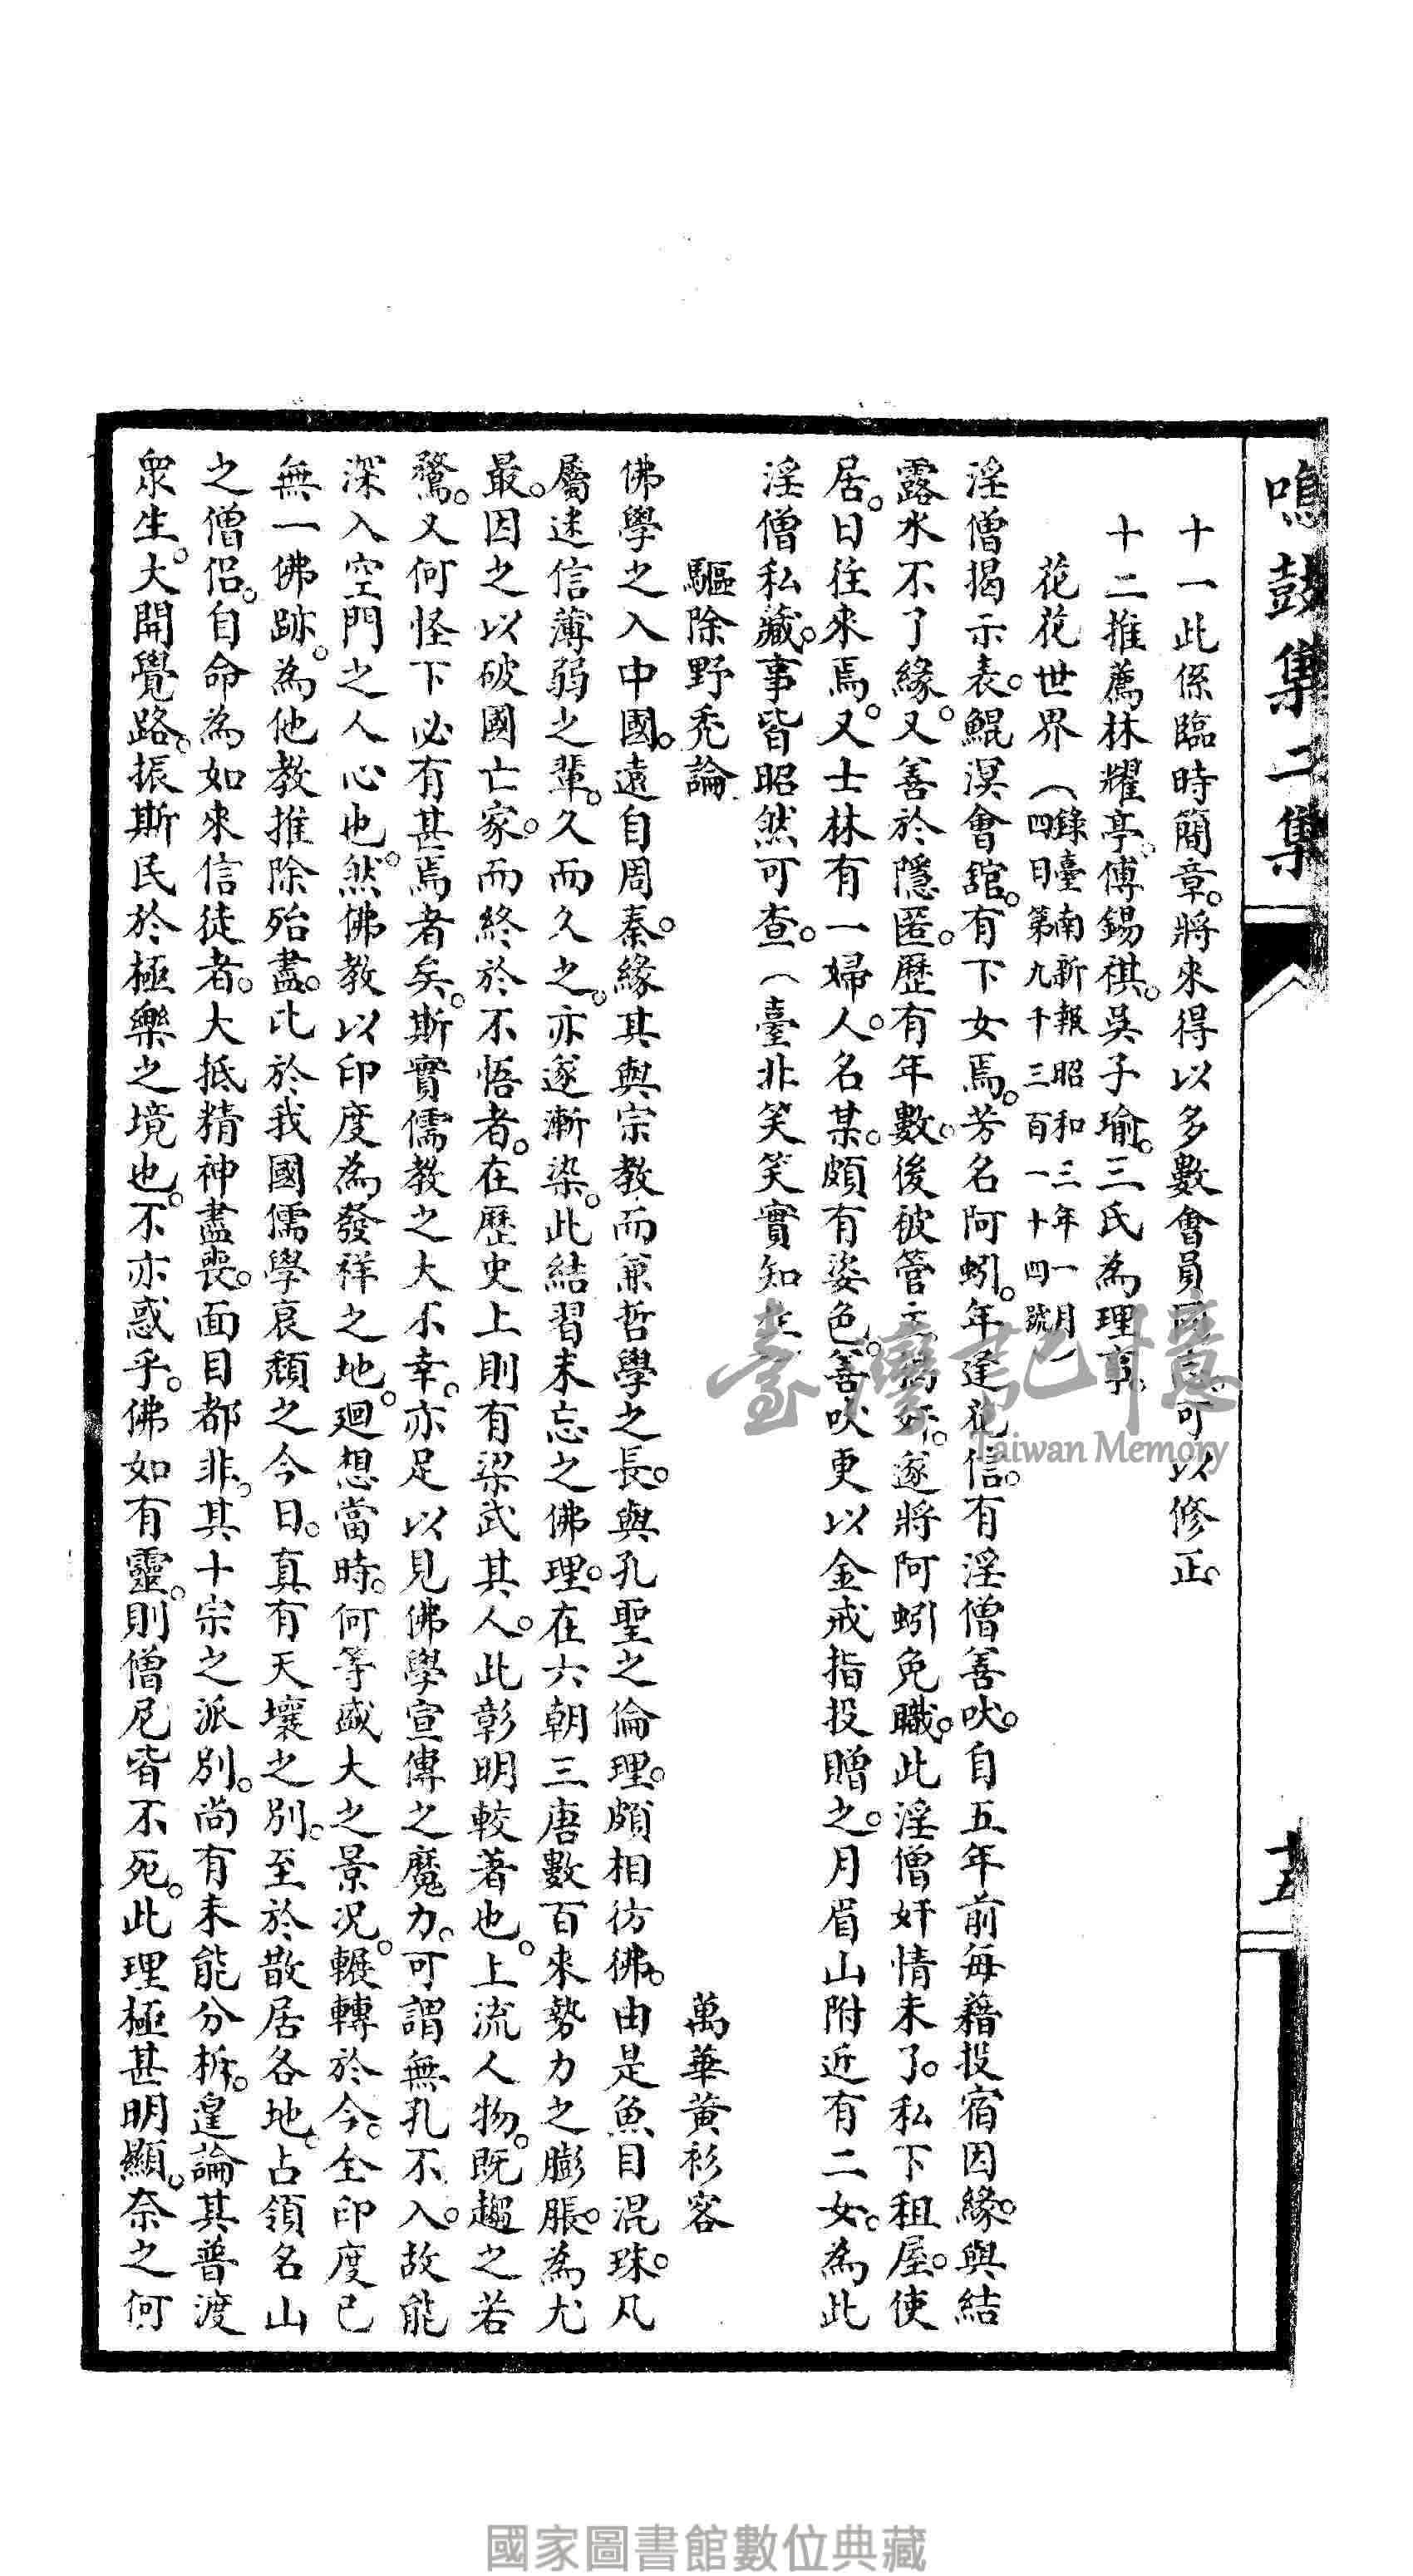 鳴鼓集二集
十五
十一此係臨時簡章。將來得以多數會員 可以修正。
十二推薦林耀亭。傅錫祺。吳子瑜。三氏為理事。
花花世界（錄臺南新報昭和三年一月一四日第九千三百一十四號
淫僧揭示表。鯤溟會館。有下女焉。芳名阿蚓。年逢花信。有淫僧善吠。自五年前每藉投宿因緣。與結
露水不了緣。又善於隱匿。歷有年數。後被管 遂將阿蚓免職。此淫僧奸情未了。私下租屋。使
居。日往來焉。又士林有一婦人。名某。頗有姿色。善吠更以金戒指投贈之。月眉山附近有二女。為此
淫僧私藏。事皆昭然可查。（臺北笑笑實知
驅除野禿論　萬華黃衫客
佛學之入中國。遠自周秦。緣其與宗教而兼哲學之長。與孔聖之倫理。頗相彷彿。由是魚目混珠。凡
屬迷信薄弱之輩。久而久之。亦遂漸染。此結習未忘之佛理。在六朝三唐數百來勢力之膨脹。為尤
最。因之以破國亡家。而終於不悟者。在歷史上則有梁武其人。此彰明較著也。上流人物。既趨之若
鶩。又何怪下必有甚焉者矣。斯實儒教之大不幸。亦足以見佛學宣傳之魔力。可謂無孔不入。故能
深入空門之人心也。然佛教以印度為發祥之地。廻想當時。何等盛大之景况。輾轉於今。全印度已
無一佛跡。為他教推除殆盡。比於我國儒學哀頹之今日。真有天壤之別。至於散居各地。占領名山
之僧侶。自命為如來信徒者。大抵精神盡喪。面目都非。其十宗之派別。尚有未能分柝。遑論其普渡
眾生。大開覺路。振斯民於極樂之境也。不亦惑乎。佛如有靈。則僧尼皆不死。此理極甚明顯。奈之何
臺灣記憶
Taiwan Memory
國家圖書館數位典藏